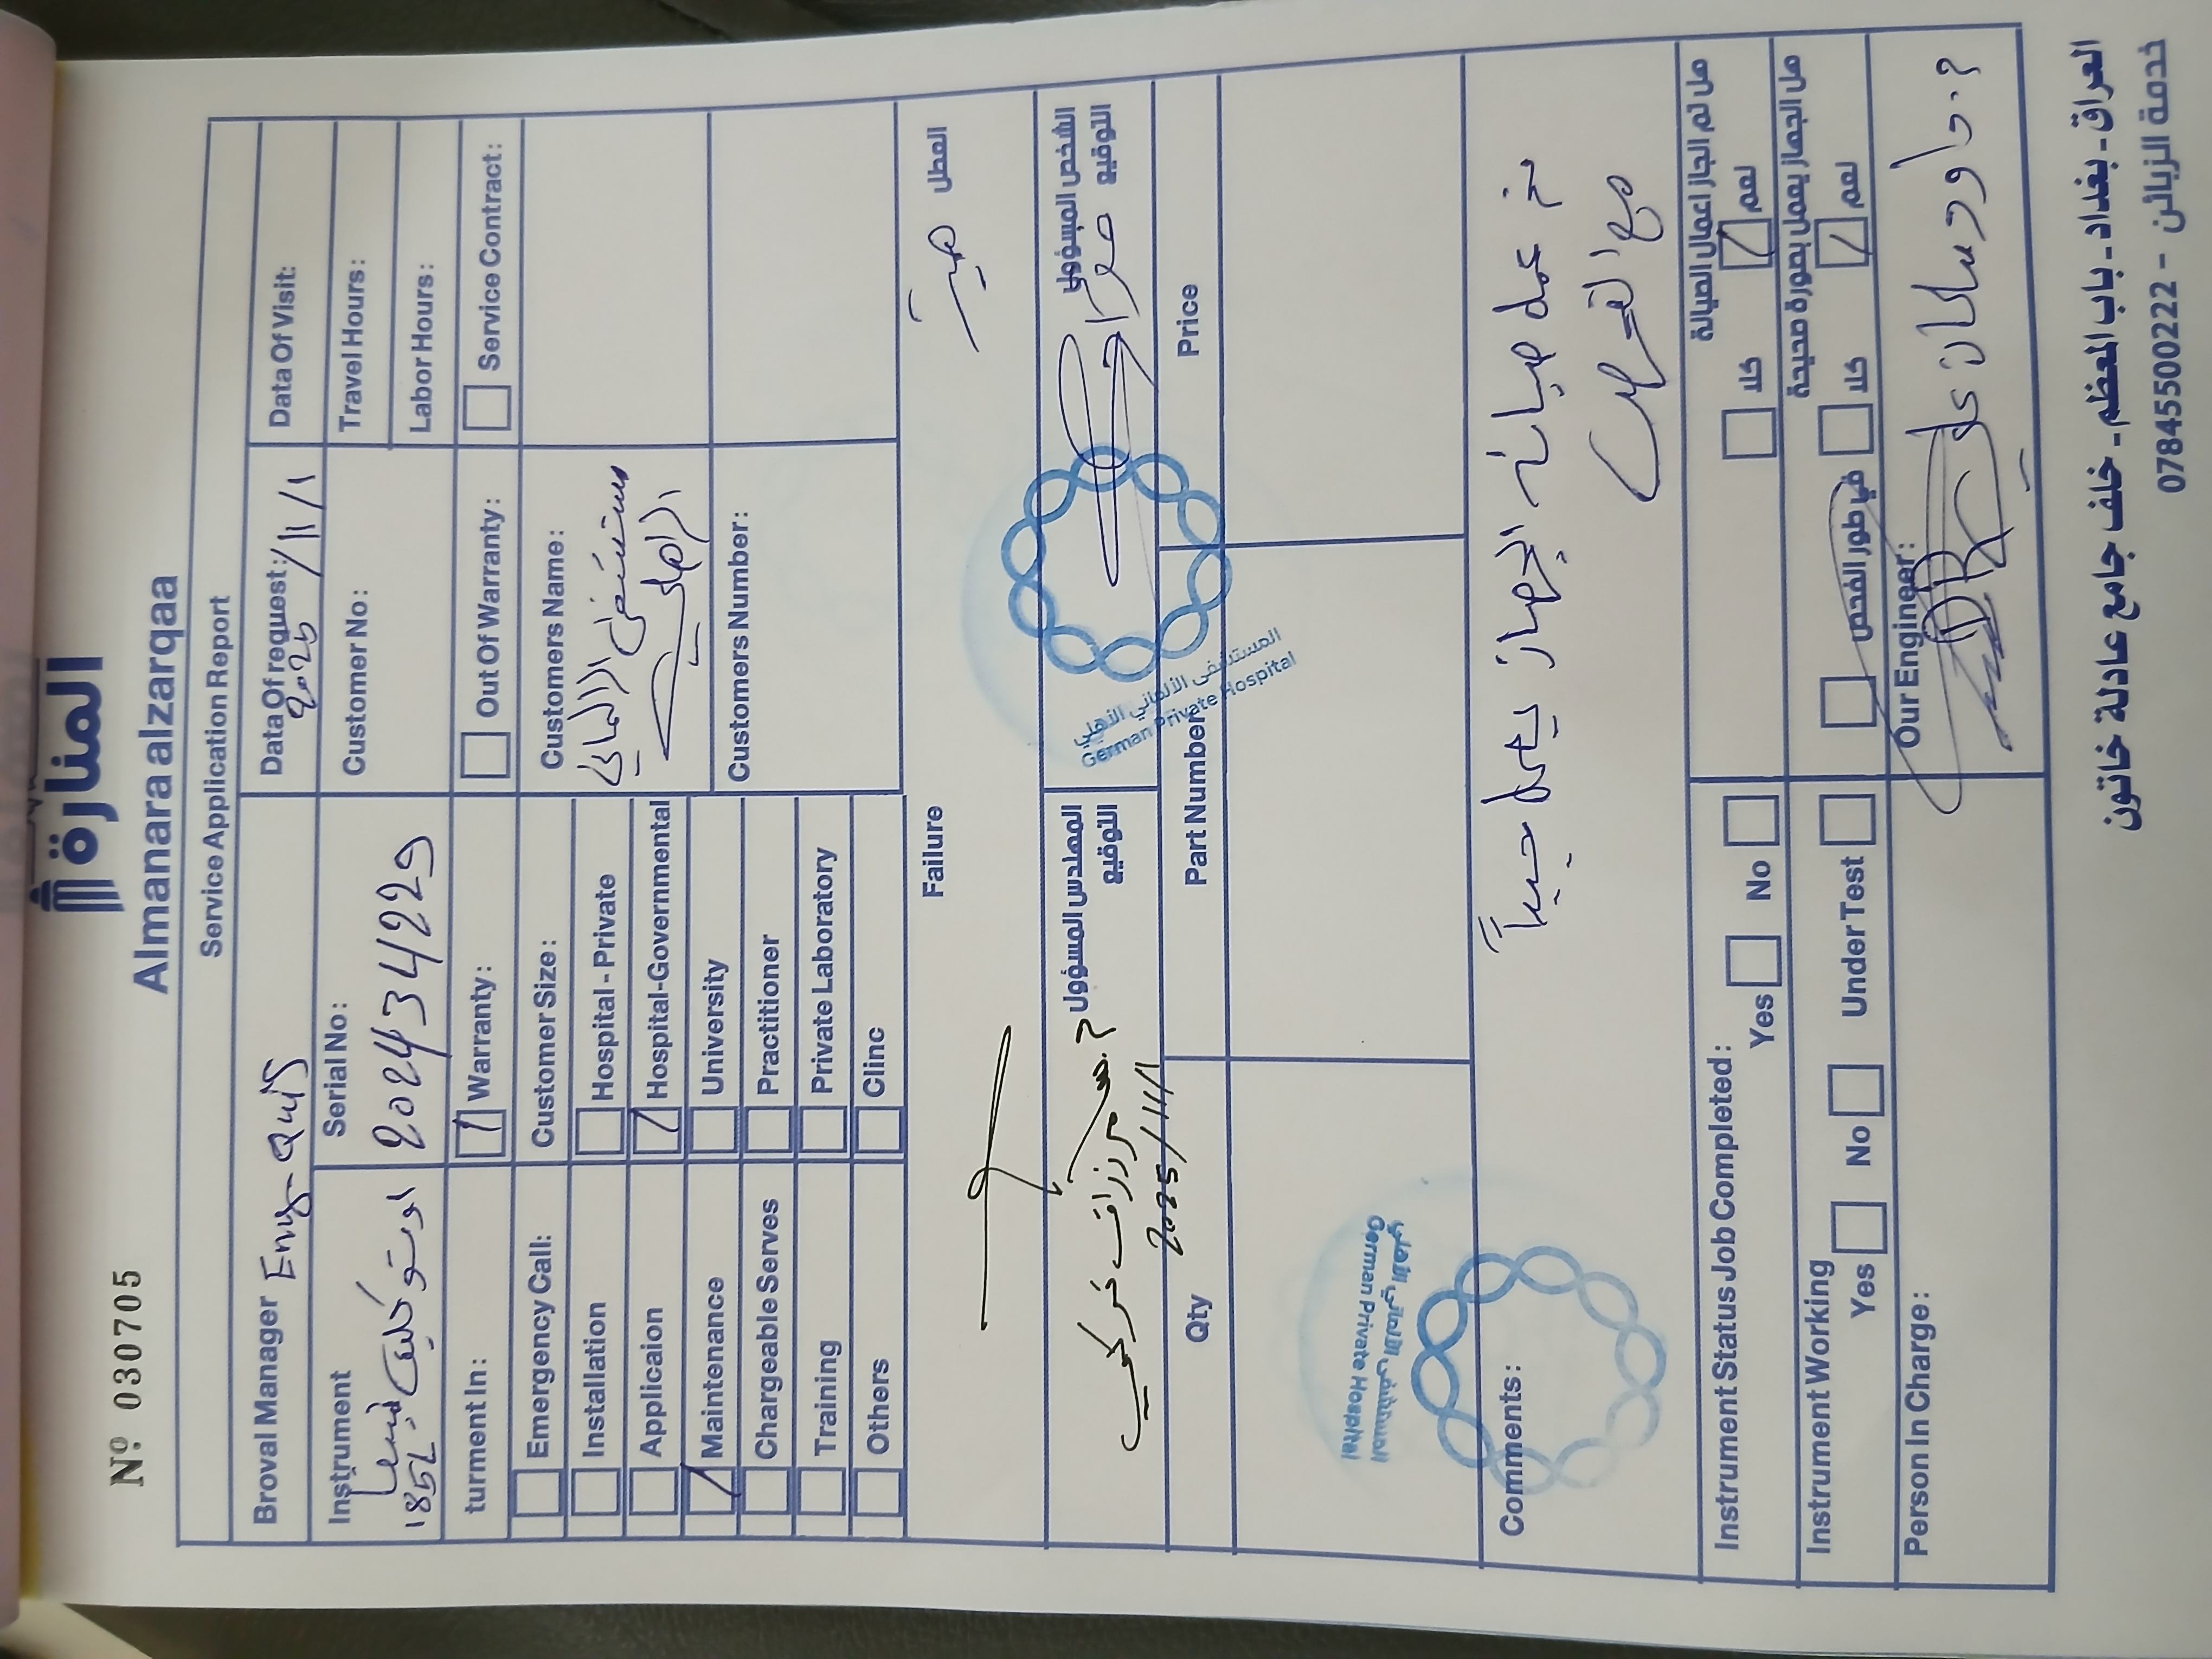 Nº: 030705
المنارة
Almanara alzarqaa
Service Application Report
Broval Manager Eng-Qais
Data Of request: 2025/11/1
Data Of Visit:
Instrument اوتوكليف
1851
Serial No: 202434229
Customer No:
Travel Hours:
Labor Hours:
turment In:
Warranty:
Out Of Warranty:
Service Contract:
Emergency Call:
Installation
Applicaion
Maintenance
Chargeable Serves
Training
Others
Customer Size:
Hospital - Private
Hospital-Governmental
University
Practitioner
Private Laboratory
Clinc
Customers Name:
مستشفى الالماني
الاهلي
Customers Number:
Failure
العطل
صيانة
المهندس المسؤول
التوقيع
2025/11/1
الشخص المسؤول
التوقيع
المستشفى الألماني الأهلي
German Private Hospital
Qty
Part Number
Price
المستشفى الألماني الأهلي
German Private Hospital
Comments:
تم عمل صيانة الجهاز يعمل جيداً
مع
Instrument Status Job Completed:
Yes
No
هل تم انجاز اعمال الصيانة
نعم
كلا
Instrument Working
Yes
No
Under Test
هل الجهاز يعمل بصورة صحيحة
نعم
كلا
في طور الفحص
Person In Charge:
Our Enginer:
م. داود سلمان علي
العراق - بغداد - باب المعظم - خلف جامع عادلة خاتون
خدمة الزبائن - 07845500222